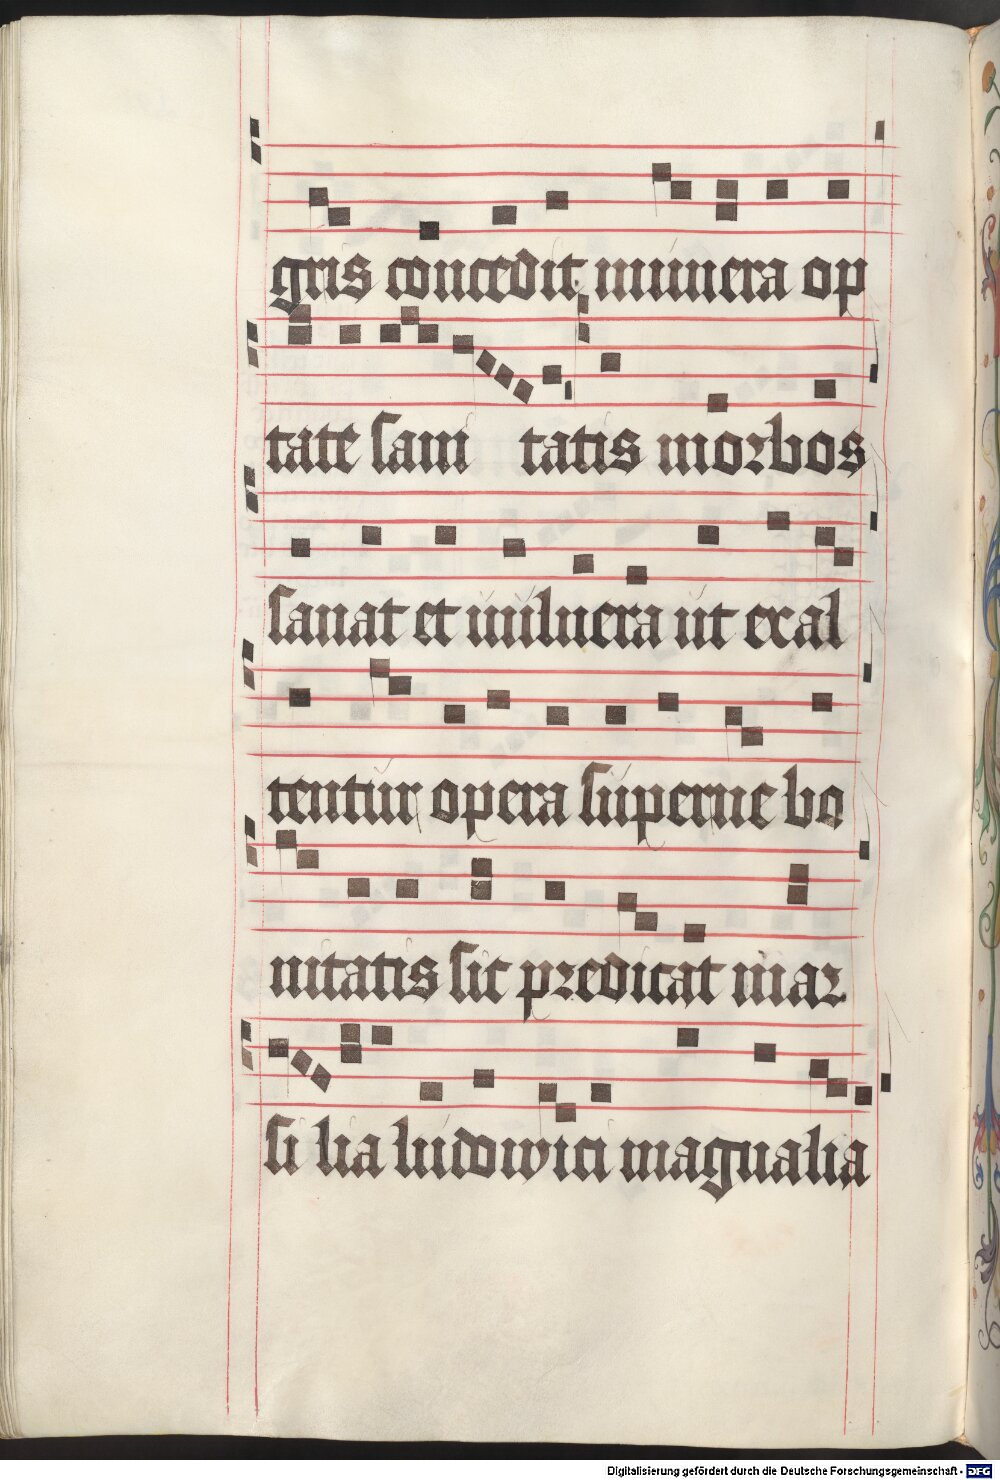 gris concedit munera op
tate sani tatis morbos
sanat et uulnera ut exal
tentur opera superne bo
nitatis sic predicat mar
si lia ludowici magnalia
Digitalisierung gefördert durch die Deutsche Forschungsgemeinschaft - DFG